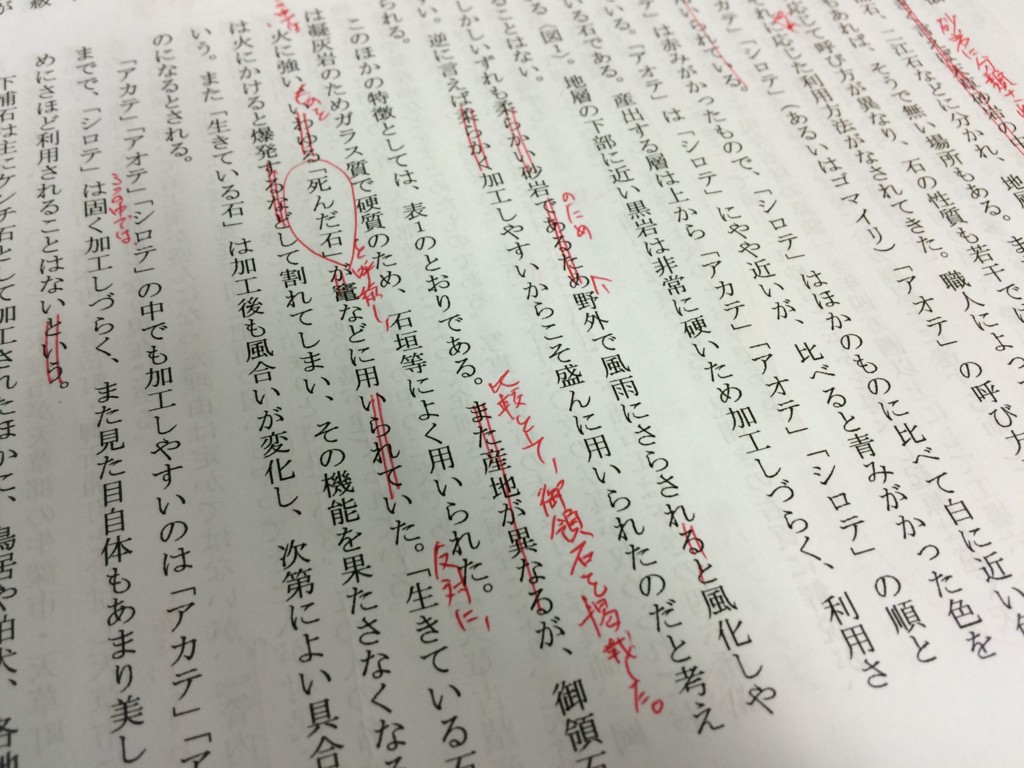 石、二江石などに分かれ、地層
もあれば、そうで無い場所もある。ま
応じて呼び方が異なり、石の性質も若干では
れに応じた利用方法がなされてきた。職人によっ
カテ」「シロテ」（あるいはゴマイリ）「アオテ」の呼び方
られている。
テ」は赤みがかったもので、「シロテ」はほかのものに比べて白に近い色
いる。「アオテ」は「シロテ」にやや近いが、比べると青みがかった色を
いる石である。産出する層は上から「アカテ」「アオテ」「シロテ」の順と
る（図1）。地層の下部に近い黒岩は非常に硬いため加工しづらく、利用さ
ることはない。
しかしいずれも柔らかい砂岩であるため野外で風雨にさらされると風化しや
のため
い。逆に言えば柔らかく加工しやすいからこそ盛んに用いられたのだと考え
られる。
比較として、御領石を掲載した。
このほかの特徴としては、表1のとおりである。また産地が異なるが、御領石
は凝灰岩のためガラス質で硬質のため、石垣等によく用いられた。
反対に、
と呼称し、
火に強い、いわゆる「死んだ石」が竃などに用いられていた。「生きている石
は火にかけると爆発するなどして割れてしまい、その機能を果たさなくなる
いう。また「生きている石」は加工後も風合いが変化し、次第によい具合
のになるとされる。
「アカテ」「アオテ」「シロテ」の中でも加工しやすいのは「アカテ」「ア
までで、「シロテ」は固く加工しづらく、また見た目自体もあまり美し
めにさほど利用されることはないという。
下浦石は主にケンチ石として加工されたほかに、鳥居や狛犬、各地